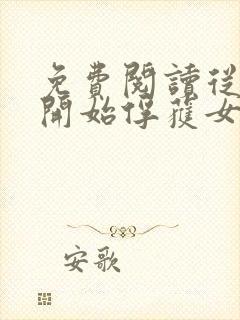 免費閱讀從
開始俘獲女
安歌